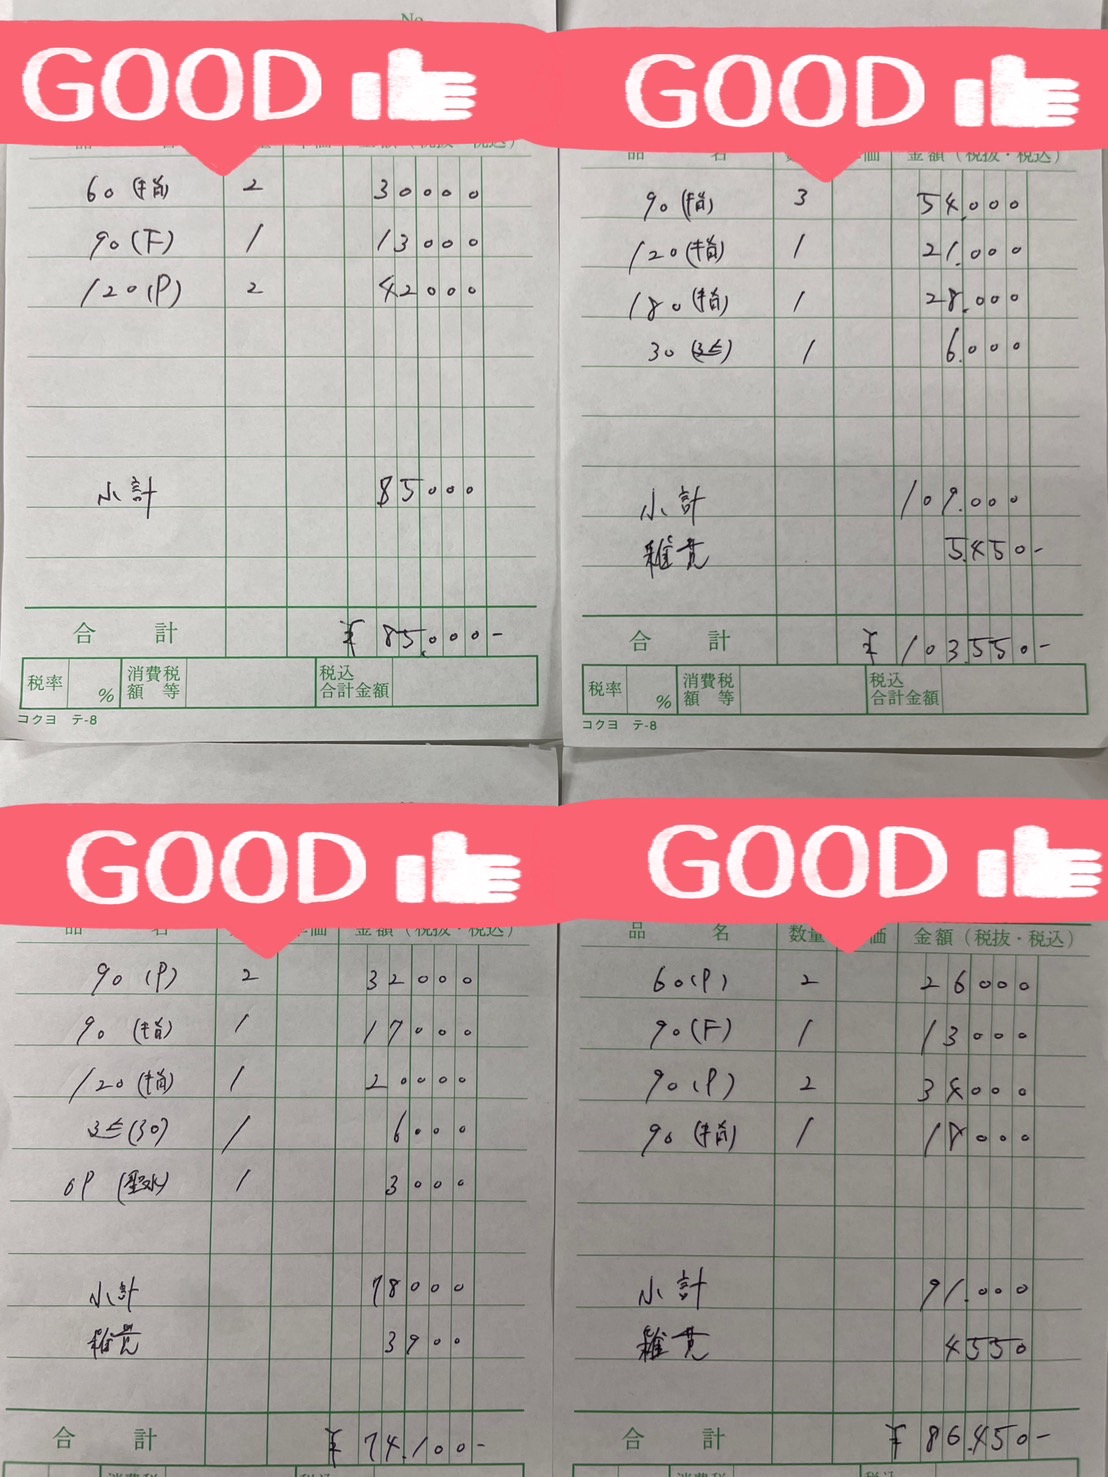 No
GOOD
60 (指) 2 30000
90 (F) 1 13000
120 (P) 2 42000
小計 85000
合計 ¥85,000-
税率 % 消費税額等 税込合計金額
コクヨ テ-8
GOOD
品 名 価 金額(税抜・税込)
90 (指) 3 54,000
120 (指) 1 21,000
180 (指) 1 28,000
30 (延) 1 6,000
小計 109,000
雑費 5,450-
合計 ¥103,550-
税率 % 消費税額等 税込合計金額
コクヨ テ-8
GOOD
品 名 価 金額(税抜・税込)
90 (P) 2 32000
90 (指) 1 17000
120 (指) 1 20000
延(30) 1 6000
OP (聖水) 1 3000
小計 78000
雑費 3900
合計 ¥74,100-
GOOD
品 名 数量 価 金額(税抜・税込)
60(P) 2 26000
90(F) 1 13000
90(P) 2 34000
90(指) 1 18000
小計 91,000
雑費 4550
合計 ¥86,450-